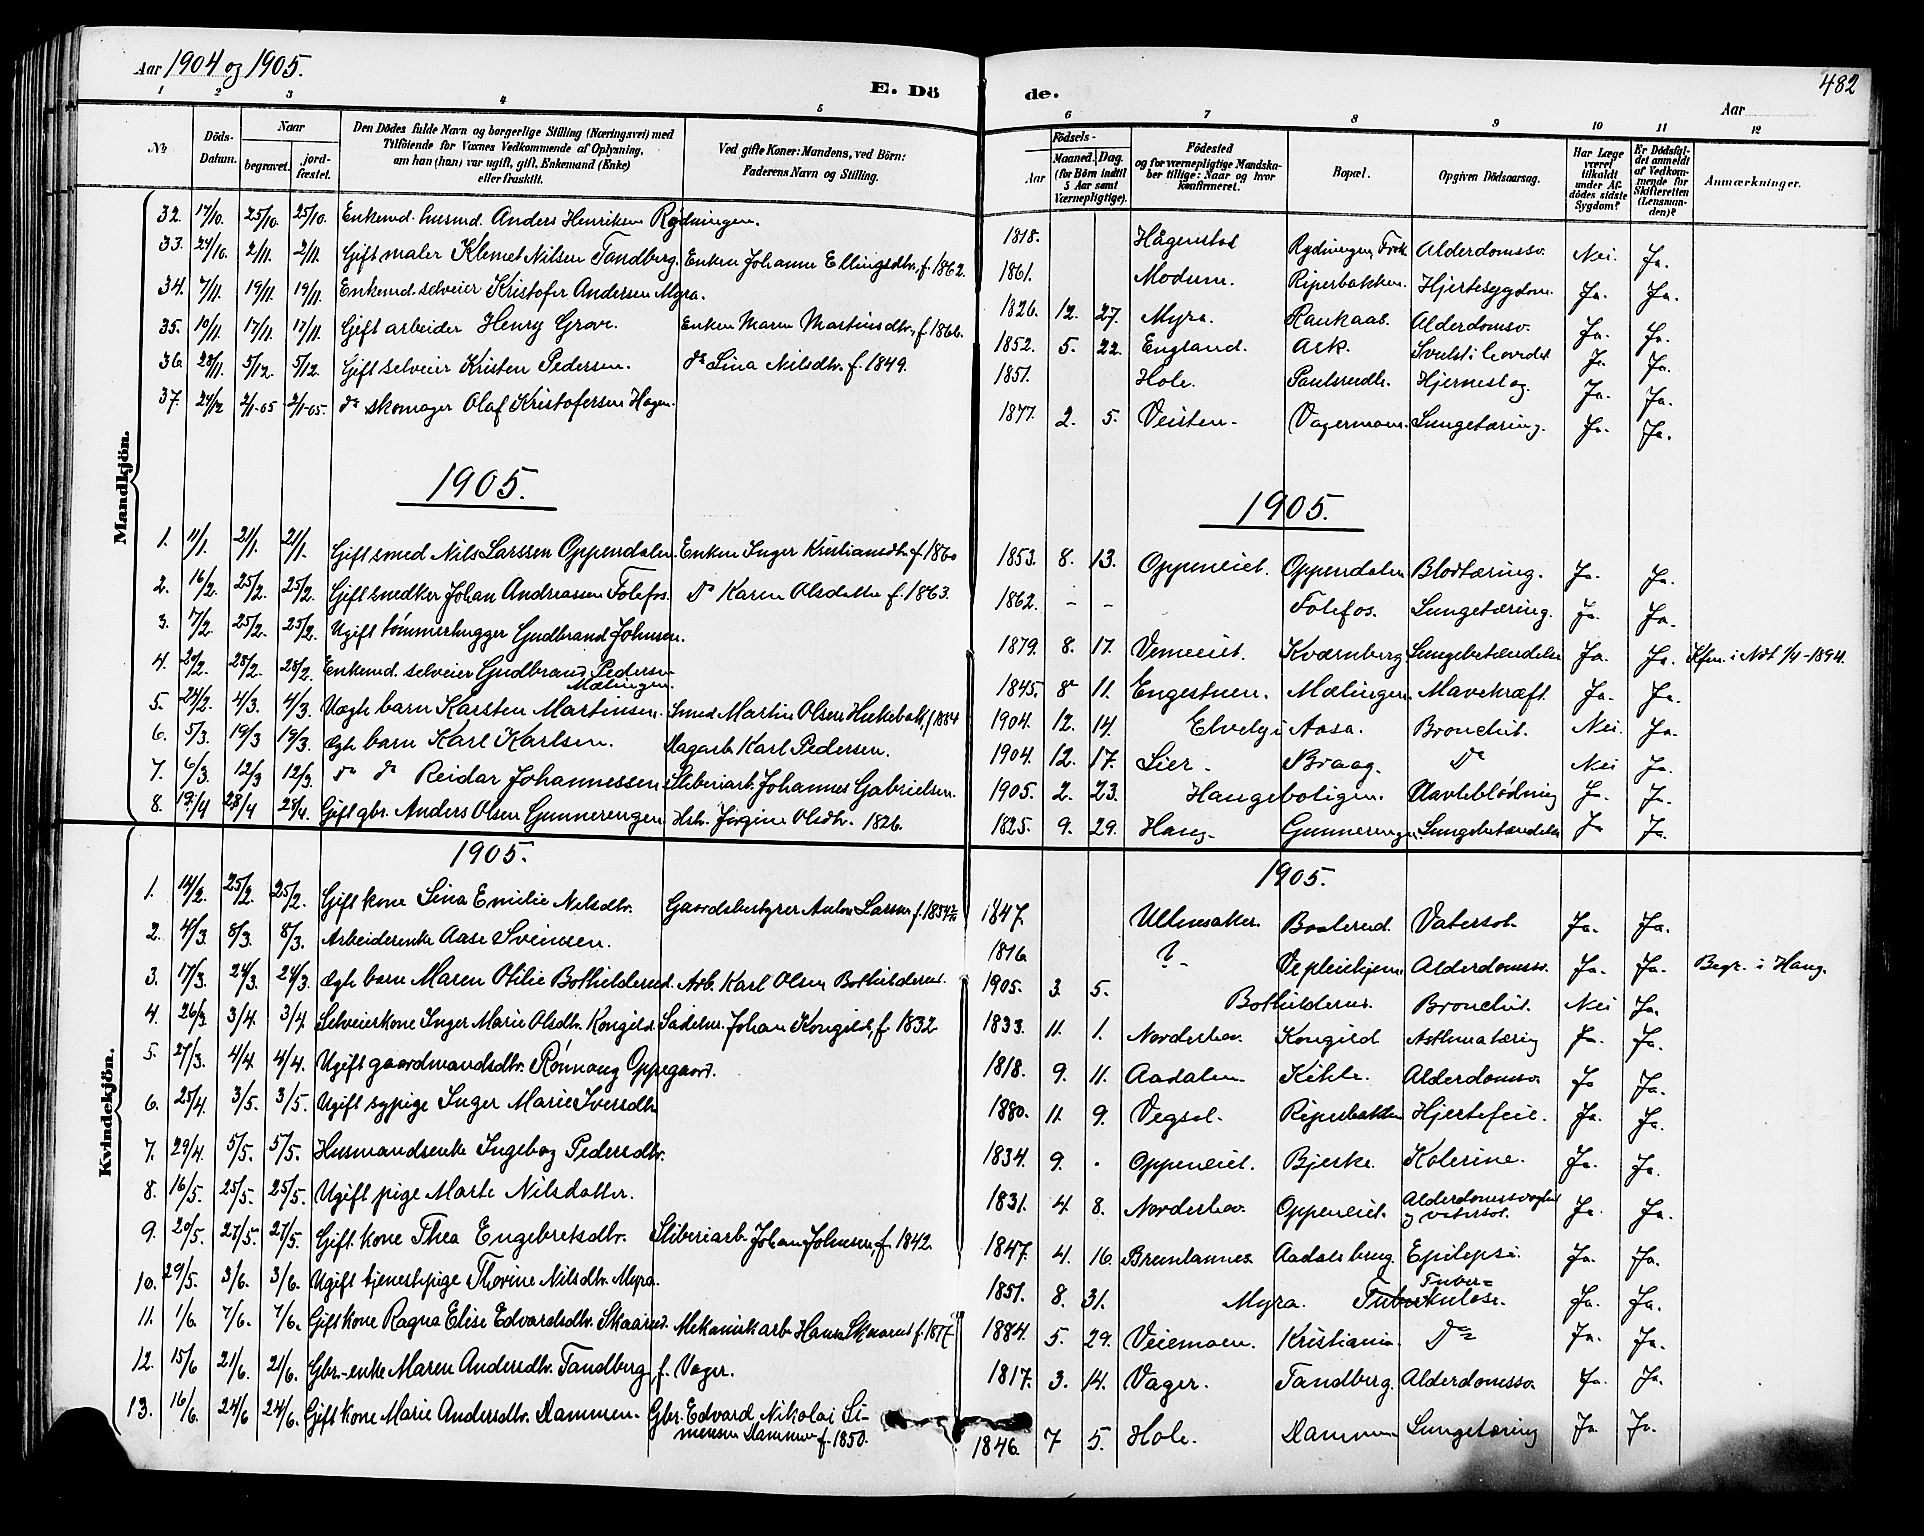 Aar 1904 og 1905.
E. Döde.
Aar
482
1 2 3 4 5 6 7 8 9 10 11 12
No
Döds-Datum.
Naar
begravet.
jord-fæstet.
Den Dödes fulde Navn og borgerlige Stilling (Næringsvei) med
Tilföiende for Voxnes Vedkommende af Oplysning,
om han (hun) var ugift, gift, Enkemand (Enke)
eller fraskilt.
Ved gifte Koner: Mandens, ved Börn:
Faderens Navn og Stilling.
Födsels-
Aar
Maaned. Dag.
(for Börn indtil
5 Aar samt
Værnepligtige).
Födested
og for værnepligtige Mandska-
ber tillige: Naar og hvor
konfirmeret.
Bopæl.
Opgiven Dödsaarsag.
Har Læge
været
tilkaldt
under Af-
dödes sidste
Sygdom?
Er Dödsfal-
det anmeldt
af Vedkom-
mende for
Skifteretten
(Lensman-
den)?
Anmærkninger.
Mandkjön.
32. 17/10. 25/10. 25/10. Enkemd. husmd. Anders Henriksen Rydningen. 1818. Hågenstad Rydningen, Alderdomssv. Nei. Ja.
33. 24/10. 2/11. 2/11. Gift maler Klemet Nilsen Tandberg. Enken Johanne Ellingsdtr. f. 1862. 1861. Modum. Riperbakken. Hjertesygdom. Ja. Ja.
34. 7/11. 19/11. 19/11. Enkemd. selveier Kristofer Andersen Myra. 1826. 12. 27. Myra. Raukaas. Alderdomssv. Ja. Ja.
35. 10/11. 17/11. 17/11. Gift arbeider Henry Grove. Enken Maren Martinsdtr. f. 1866. 1852. 5. 22. England. Ask. Svulst i hovedet Ja. Ja.
36. 28/11. 5/12. 5/12. Gift selveier Kristen Pedersen. do Lina Nilsdtr. f. 1849. 1851. Hole. Paulsrudh. Hjerneslag. Ja. Ja.
37. 24/12 2/1-05 2/1-05. do skomager Olaf Kristofersen Hagen. 1877. 2. 5. Veisten. Vagermoen. Lungetæring. Ja. Ja.
1905. 1905.
1. 11/1. 21/1. 21/1. Gift smed Nils Larssen Oppendalen. Enken Inger Kristiansdtr. f. 1860 1853. 8. 13. Oppeneiet. Oppendalen Blodtæring. Ja. Ja.
2. 16/2. 25/2. 25/2. Gift snedker Johan Andreassen Folefos. Do Karen Olsdatter f. 1863. 1862. - - Folefos. Lungetæring. Ja. Ja.
3. 17/2. 25/2. 25/2. Ugift tömmerhugger Gudbrand Johnsen. 1879. 8. 17. Vemeeiet. Kværnberg Lungebetændelse Ja. Ja. Kfm. i Ndt 1/4-1894.
4. 20/2. 28/2. 28/2. Enkemd. selveier Gudbrand Pedersen
Mælingen. 1845. 8 11. Engestuen. Mælingen. Mavekræft. Ja. Ja.
5. 24/2. 4/3. 4/3. Uægte barn Karsten Martinsen. Smed Martin Olsen f. 1884 1904. 12. 14. Elvely i Aasa. Bronchit. Nei. Ja.
6. 5/3. 19/3 19/3. Ægte barn Karl Karlsen. Magarb. Karl Pedersen. 1904. 12. 17. Lier. Braag. Do Nei Ja.
7. 6/3. 12/3 12/3. do do Reidar Johannessen Sliberiarb. Johannes Gabrielsen. 1905. 2. 23. Haugsboligen. Navleblödning Ja. Ja.
8. 19/4 28/4 28/4. Gift gbr. Anders Olsen Gunnerengen. Hstr. Jörgine Olsdtr. 1826. 1825. 9. 29. Haug. Gunnerengen. Lungebetændelse Ja Ja.
Kvindekjön.
1905. 1905.
1. 14/2. 25/2. 25/2. Gift kone Lina Emilie Nilsdtr. Gaardsbestyrer Anton Larsen f. 1847. Ullensaker. Baalerud. Vatersot. Ja. Ja.
2. 4/3. 8/3. 8/3. Arbeiderenke Aase Svensen. 1816. ? - Alderdomssv. Ja. Ja. Begr. i Haug.
3. 17/3. 24/3. 24/3. Ægte barn Maren Otilie Bothilderud. Arb. Karl Olsen Bothilderud. 1905. 3. 5. Bothilderud. Bronchit. Nei Ja.
4. 26/3 3/4 3/4. Selveierkone Inger Marie Olsdtr. Kongild. Sadelm. Johan Kongild, f. 1832. 1833. 11. 1. Norderhov. Kongild Asthmatæring Ja. Ja.
5. 27/3. 4/4 4/4. Ugift gaardmandsdtr. Rönnaug Oppegaard. 1818. 9. 11. Aadalen. Kihle. Alderdomssv. Ja Ja.
6. 25/4. 3/5. 3/5. Ugift sypige Inger Marie Iversdtr. 1880. 11. 9. Vegsal. Riperbakken Hjertefeil. Ja. Ja.
7. 29/4. 5/5. 5/5. Husmandsenke Ingebog Pedersdtr. 1834. 9. . Oppeneiet. Bjerke. Kolerine. Ja. Ja.
8. 16/5. 25/5. 25/5. Ugift pige Marte Nilsdatter. 1831. 4. 8. Norderhov. Oppeneiet. Alderdomssvaghed
og vatersot. Ja. Ja.
9. 20/5. 27/5. 27/5. Gift kone Thea Engebretsdtr. Sliberiarb. Johan Johnsen, f. 1842. 1847. 4. 16. Brunlannes Aadalsbrug. Epilepsi. Ja. Ja.
10. 29/5. 3/6. 3/6. Ugift tjenestepige Thorine Nilsdtr. Myra. 1851. 8. 31. Myra. Tuber=
Tuberkulose. Ja. Ja.
11. 1/6. 7/6. 7/6. Gift kone Ragna Elise Edvardsdtr. Skaarud. Mekaniskarb. Hans Skaarud f. 1877. 1884. 5. 29. Veiemoen. Kristiania Do Ja. Ja.
12. 15/6 21/6. 21/6. Gbr.-enke Maren Andersdtr. Tandberg, f. Vager. 1817. 3. 14. Vager. Tandberg. Alderdomssv. Ja. Ja.
13. 16/6. 24/6 24/6. Gift kone Marie Andersdtr. Dammen. Gbr. Edvard Nikolai Si-
mensen Dammen f. 1850. 1846. 7 5. Hole. Dammen Lungetæring Ja Ja.